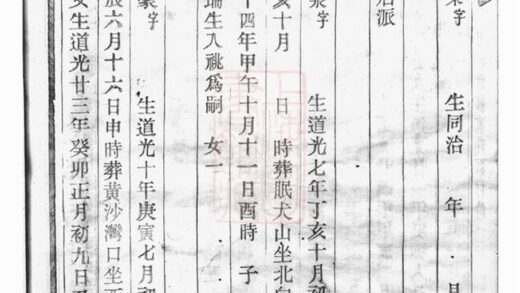 字
生同治 年 月
派
字 生道光七年丁亥十月初
亥十月 日 時葬眠犬山坐北向
十四年甲午十月十一日酉時 子
瑞生入祧爲嗣 女一
字 生道光十年庚寅七月初
辰六月十六日申時葬黄沙灣口坐西
女生道光廿三年癸卯正月初九日